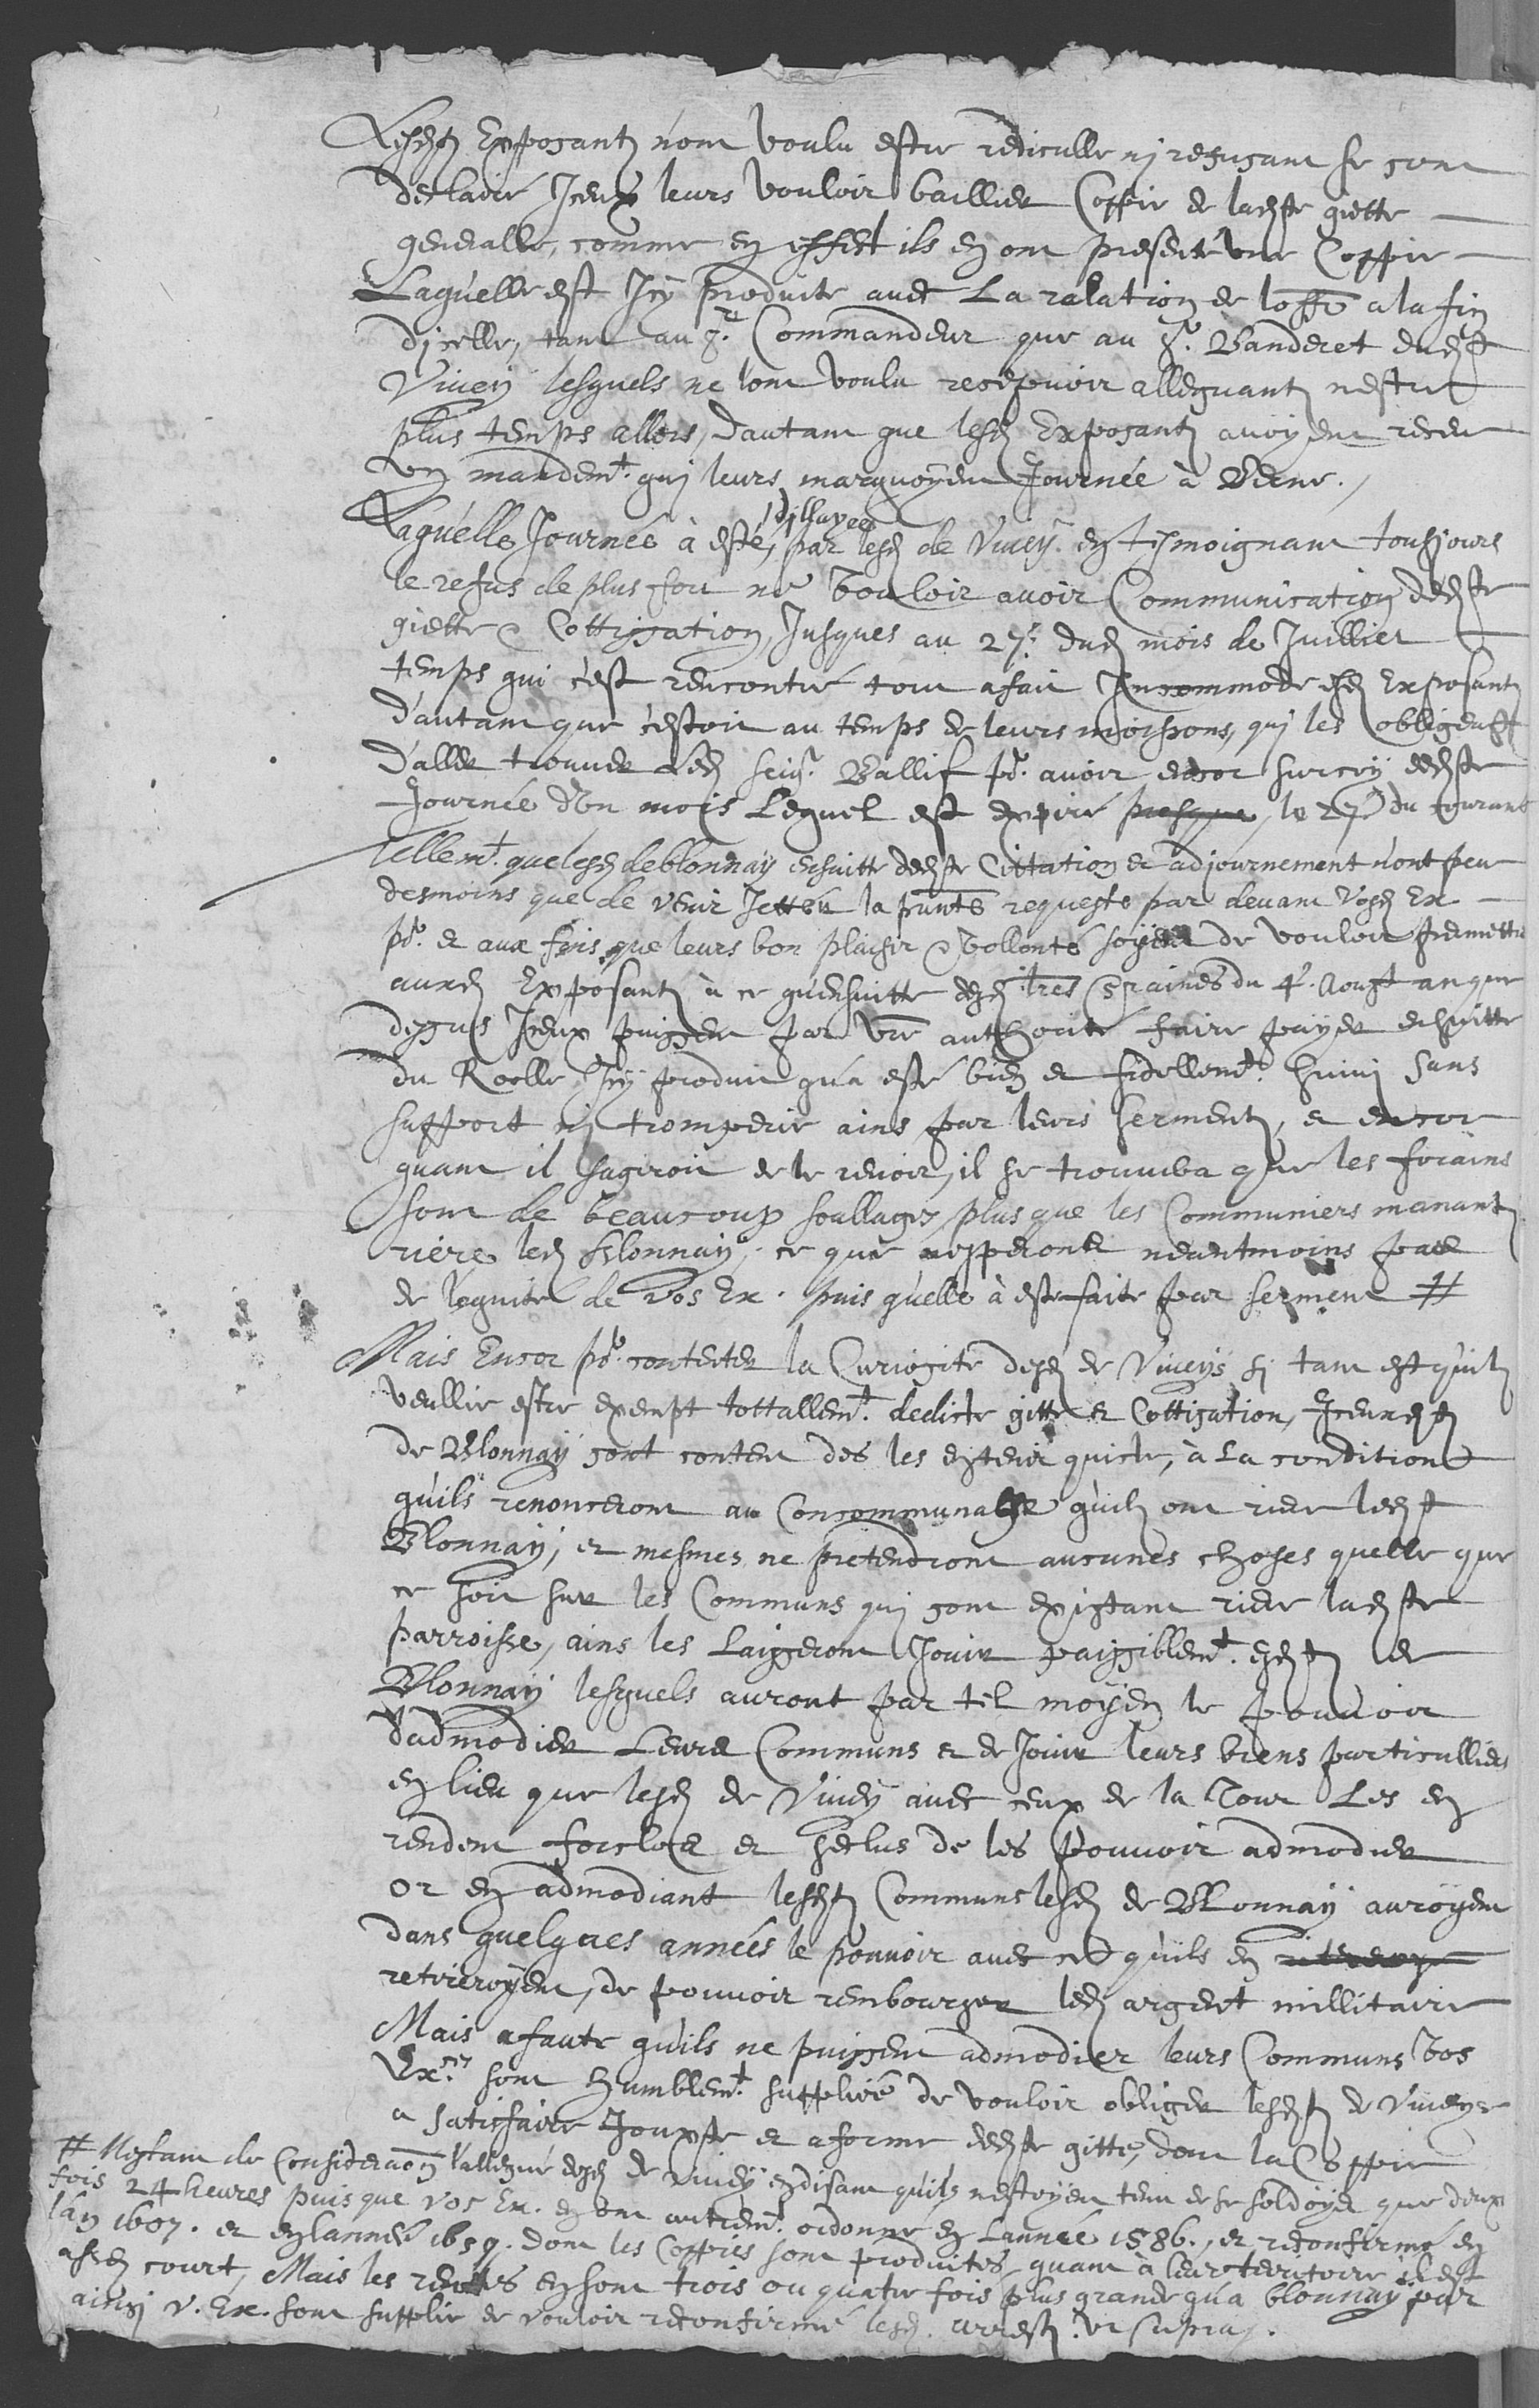 Lesd. Exposants n'ont voulu estre rediculle nj refusant se sont
declairé Iceux leurs vouloir baillier Coppie de lad. giette
generalle, comme en effect ils en ont presenté une Coppie
Laquelle est Icy produite avec La ralation de loff. a la fin
dicelle, tant au Sr. Commandeur que au Sr. Banderet dud.
Vivey lesquels ne lont voulu recepvoir alleguants nestre
plus temps allors, dautant que lesd. Exposants avoyent receu
un mandemt. qui leurs marquoyent Journée à Berne.
Laquelle Journée à esté, dillayee par lesd. de Vivey. en tesmoignant tousjours
le refus de plus fort ne vouloir avoir Communication ded.
giette & Cottisation, Jusques au 27e. dud. mois de Juillier
temps qui c'est rencontré tout a fait Incommode esd. Exposants
d'autant que c'estoit au temps de leurs moissons, qui les obligeust
d'aller trouver Led. seigr. Ballif pr. avoir encor surcoy ded.
Journée d'Un mois Lequel est expiré presque, le 27e du courant
tellemt. que lesd. de blonnay ensuitte ded. Cittation et adjournement n'ont peu
desmoins que de venir Jetter la pnte requeste par devant Vosd. Ex
pr. et aux fins que leurs bon plaisir & vollonté soyent de vouloir permettre
auxd. Exposants à ce qu'ensuitte desd. lres Sraines du 4e. Aougst an que
dessus Iceux puissent par vre authorité faire payer ensuitte
du Roolle Icy produit qu'a esté bien et fidellemt. suivi sans
support nj tromperie ains par leurs serments, et encor
quant il s'agiroit de le revoir, il se trouvera que les forains
sont de beaucoup soullagez plus que les Communiers manants
riere led. Blonnay, ce que nesperont neantmoins pas
de l'equité de vos Ex. puis qu'elle à esté faite par serment #
Mais Encor pr. contenter la Curiosité desd. de Viveys si tant est quils
veullie estre exempt tottallemt. dedicte gitte et Cottisation, Iceuxd.
de Blonnay sont content des les en tenir quicte, à La condition
quils renonceront au Consommunage quils ont riere led.
Blonnay, et mesmes ne pretendront aucunes choses quelle que
ce soit sur les Communs qui sont existant riere lad.
parroisse, ains les Laisseront Jouir paisiblemt. esd. de
Blonnay lesquels auront par tel moyen le pouvoir
dadmodier Leurs Communs et de Jouir leurs biens particulliers
en lieu que lesd. de Vivey avec ceux de la Tour Les en
rendent forclos et seclus de les pouvoir admodier
or en admodiant lesd. Communs lesd. de Blonnay auroyent
dans quelques années le pouvoir avec ce qu'ils en
retireroyent, de pouvoir rembourser led. argent millitaire
Mais a faute qu'ils ne puissent admodier leurs Communs Vos
Exces. sont humblemt. supplié de vouloir obliger lesd. de Viveys
a satisfaire Jouxte et a forme ded. gitte, dont la Coppie
# Nestant de Consideraon l'allegué desd. de Vivey en disant quils nestoyent tenu de se soldoye que deux
fois 24 heures puisque vos Ex. en ont autremt. ordonné en Lannée 1586., et reconfirmé en
lan 1607. et en lannée 1659. dont les Coppies sont produites, quant à leur territoire il est
assez court, Mais les rentes en sont trois ou quatre fois plus grande qu'a blonnay par
ainsi V. Ex. sont supplié de vouloir reconfirmé lesd. arrests. ut supra.